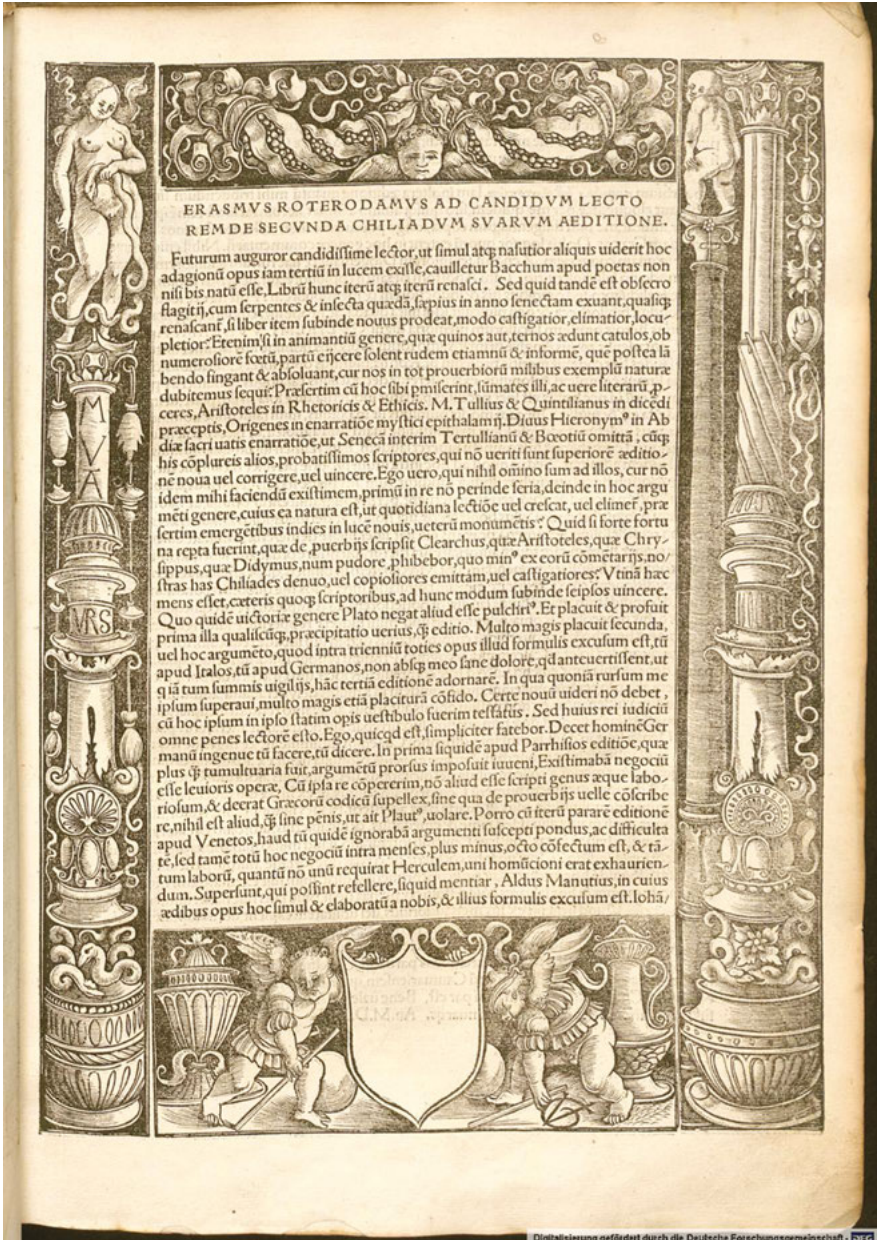 ERASMVS ROTERODAMVS AD CANDIDVM LECTO
REM DE SECVNDA CHILIADVM SVARVM AEDITIONE.
Futurum auguror candidissime lector, ut simul atq; nasutior aliquis uiderit hoc
adagionũ opus iam tertiũ in lucem exisse, cauilletur Bacchum apud poetas non
nisi bis natũ esse, Librũ hunc iterũ atq; iterũ renasci. Sed quid tandẽ est obsecro
flagitij, cum serpentes & insecta quædã, sæpius in anno senectam exuant, quasiq;
renascanť, si liber item subinde nouus prodeat, modo castigatior, elimatior, locu-
pletior? Etenim si in animantiũ genere, quæ quinos aut, ternos ædunt catulos, ob
numerosiorẽ fœtũ, partũ eijcere solent rudem etiamnũ & informẽ, quẽ postea lã
bendo fingant & absoluant, cur nos in tot prouerbiorũ milibus exemplũ naturæ
dubitemus sequi? Præsertim cũ hoc sibi pmiserint, sũmates illi, ac uere literarũ, p-
ceres, Aristoteles in Rhetoricis & Ethicis. M. Tullius & Quintilianus in dicẽdi
præceptis, Origenes in enarratiõe mystici epithalamij. Diuus Hieronymꝰ in Ab
diæ sacri uatis enarratiõe, ut Senecã interim Tertullianũ & Bœotiũ omittã, cũq;
his cõplureis alios, probatissimos scriptores, qui nõ ueriti sunt superiorẽ æditio-
nẽ noua uel corrigere, uel uincere. Ego uero, qui nihil oĩno sum ad illos, cur nõ
idem mihi faciendũ existimem, primũ in re nõ perinde seria, deinde in hoc argu
mẽti genere, cuius ea natura est, ut quotidiana lectiõe uel crescat, uel elimeť, præ
sertim emergẽtibus indies in lucẽ nouis, ueterũ monumẽtis? Quid si forte fortu
na repta fuerint, quæ de, puerbijs scripsit Clearchus, quæ Aristoteles, quæ Chry-
sippus, quæ Didymus, num pudore, phibebor, quo minꝰ ex eorũ cõmẽtarijs, no/
stras has Chiliades denuo, uel copiosiores emittam, uel castigatiores? Vtinã hæc
mens esset, cæteris quoq; scriptoribus, ad hunc modum subinde seipsos uincere.
Quo quidẽ uictoriæ genere Plato negat aliud esse pulchriꝰ. Et placuit & profuit
prima illa qualiscũq;, præcipitatio uerius, q̃; editio. Multo magis placuit secunda,
uel hoc argumẽto, quod intra trienniũ toties opus illud formulis excusum est, tũ
apud Italos, tũ apud Germanos, non absq; meo sane dolore, qđ anteuertissent, ut
q iã tum summis uigilijs, hãc tertiã editionẽ adornarẽ. In qua quoniã rursum me
ipsum superaui, multo magis etiã placiturã cõfido. Certe nouũ uideri nõ debet,
cũ hoc ipsum in ipso statim opis uestibulo fuerim testatus. Sed huius rei iudiciũ
omne penes lectorẽ esto. Ego, quicqđ est, simpliciter fatebor. Decet hominẽ Ger
manũ ingenue tũ facere, tũ dicere. In prima siquidẽ apud Parrhisios editiõe, quæ
plus q̃; tumultuaria fuit, argumẽtũ prorsus imposuit iuueni, Existimabã negociũ
esse leuioris operæ, Cũ ipsa re cõpererim, nõ aliud esse scripti genus æque labo-
riosum, & deerat Græcorũ codicũ supellex, sine qua de prouerbijs uelle cõscribe
re, nihil est aliud, q̃; sine pẽnis, ut ait Plautꝰ, uolare. Porro cũ iterũ pararẽ editionẽ
apud Venetos, haud tũ quidẽ ignorabã argumenti suscepti pondus, ac difficulta
tẽ, sed tamẽ totũ hoc negociũ intra menses, plus minus, octo cõfectum est, & tã-
tum laborũ, quantũ nõ unũ requirat Herculem, uni homũcioni erat exhaurien-
dum. Supersunt, qui possint refellere, siquid mentiar, Aldus Manutius, in cuius
ædibus opus hoc simul & elaboratũ a nobis, & illius formulis excusum est. Iohã/
MVÃ
VRS
Digitalisierung gefördert durch die Deutsche Forschungsgemeinschaft - DFG